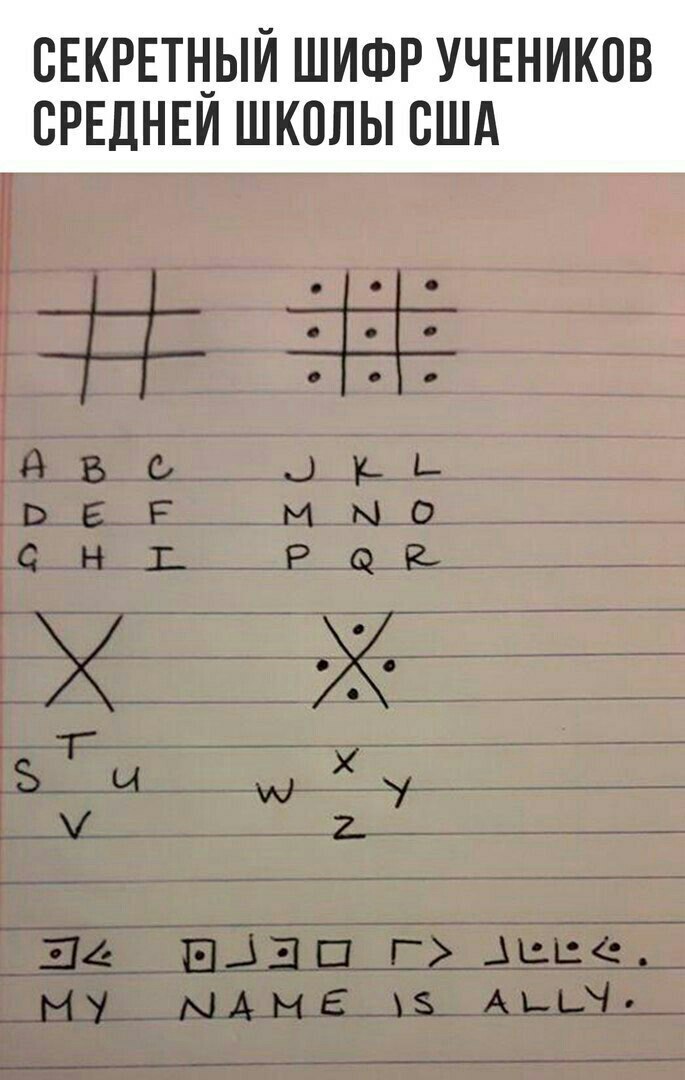 СЕКРЕТНЫЙ ШИФР УЧЕНИКОВ
СРЕДНЕЙ ШКОЛЫ США
A B C J K L
D E F M N O
G H I P Q R
T X
S U W Y
V Z
MY NAME IS ALLY.